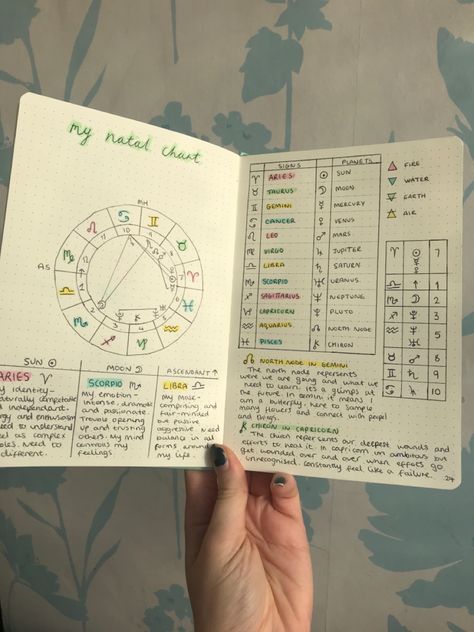 my natal chart
MH
AS
SUN ☉
ARIES ♈
MOON ☽
SCORPIO ♏
My emotion-
intense, dramatic
and passionate.
trouble opening
up and trusting
others. My mind
controls my
feelings.
ASCENDANT ↑
LIBRA ♎
and fair-minded
but passive
aggressive. Need
balance in all
my life.
SIGNS PLANETS
♈ ARIES ☉ SUN
♉ TAURUS ☽ MOON
♊ GEMINI ☿ MERCURY
♋ CANCER ♀ VENUS
♌ LEO ♂ MARS
♍ VIRGO ♃ JUPITER
♎ LIBRA ♄ SATURN
♏ SCORPIO ♅ URANUS
♐ SAGITTARIUS ♆ NEPTUNE
♑ CAPRICORN ♇ PLUTO
♒ AQUARIUS ☊ NORTH NODE
♓ PISCES ⚷ CHIRON
FIRE
WATER
EARTH
AIR
7
1
2
3
5
8
9
10
☊ NORTH NODE IN GEMINI
The north node represents
were we are going and what we
need to learn. It's a glimps at
the future. In gemini it means I
am a butterfly. Here to sample
many flowers and connect with people
and things.
⚷ CHIRON IN CAPRICORN
The chiron represents our deepest wounds and
efforts to heal it. In capricorn im ambitous but
get wounded over and over when efforts go
unrecognised. constantly feel like a failure.
24